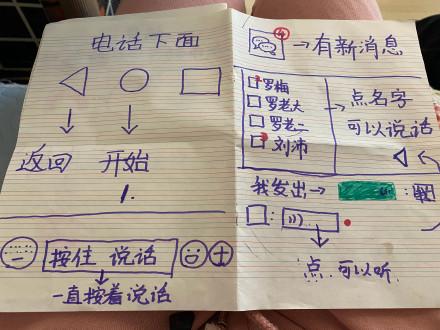 电话下面
返回 开始
1.
按住 说话
一直按着说话
4
→有新消息
罗梅
罗老大
罗老二
刘沛
→点名字
可以说话
我发出→
点.可以听